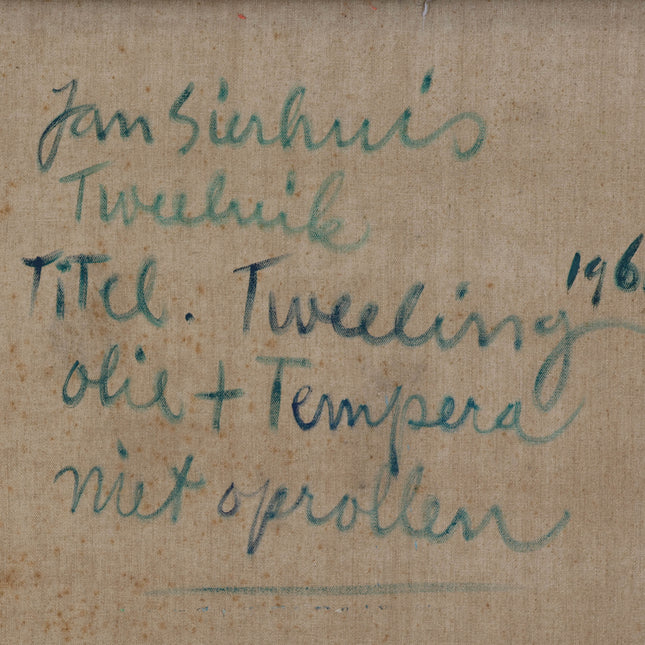 Jan Sierhuis
Tweeluik
TiTel. Tweeling 196
olie + Tempera
niet oprollen